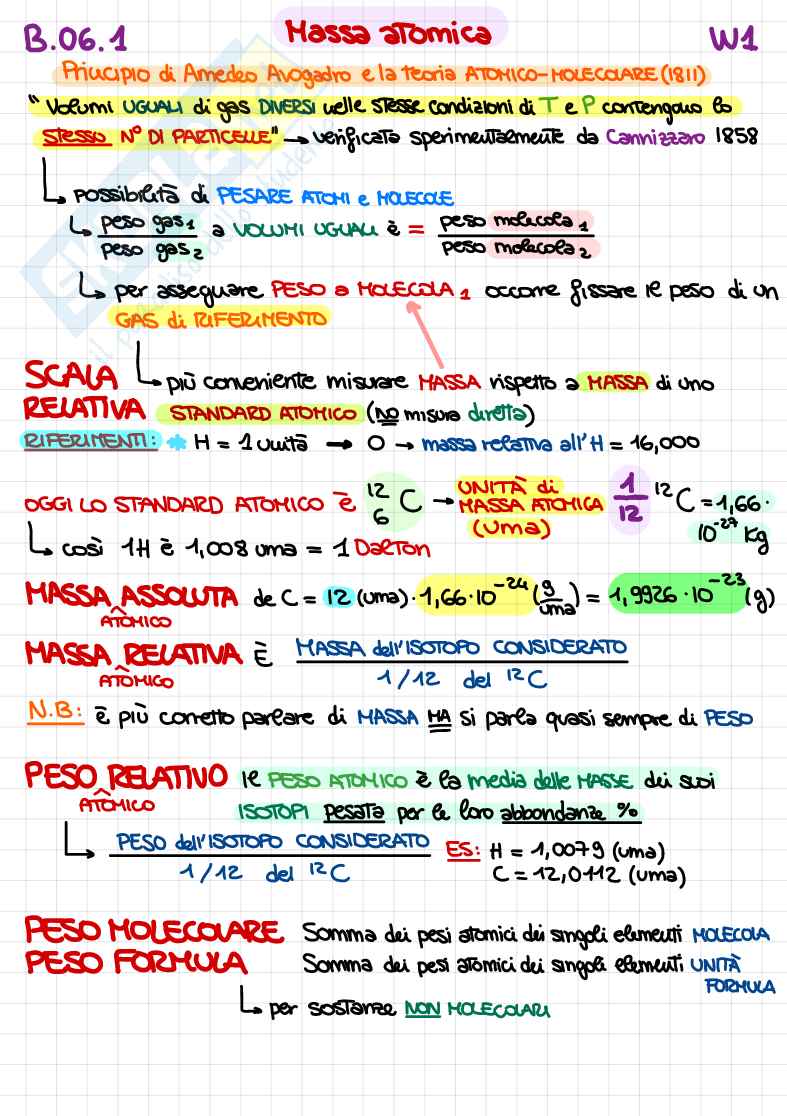 B.06.1 Massa atomica W1
Principio di Amedeo Avogadro e la teoria ATOMICO-MOLECOLARE (1811)
"Volumi UGUALI di gas DIVERSI nelle stesse condizioni di T e P contengono lo
STESSO N° DI PARTICELLE" → verificata sperimentalmente da Cannizzaro 1858
↳ POSSIBILITÀ di PESARE ATOMI e MOLECOLE
↳ peso gas₁ / peso gas₂ a VOLUMI UGUALI è = peso molecola₁ / peso molecola₂
↳ per assegnare PESO a MOLECOLA₁ occorre fissare il peso di un
GAS di RIFERIMENTO
SCALA ↳ più conveniente misurare MASSA rispetto a MASSA di uno
RELATIVA STANDARD ATOMICO (NO misura diretta)
RIFERIMENTI: * H = 1 unità → O → massa relativa all'H = 16,000
OGGI LO STANDARD ATOMICO È ¹²₆C → UNITÀ di MASSA ATOMICA (uma) 1/12 ¹²C = 1,66 · 10⁻²⁷ Kg
↳ così 1H è 1,008 uma = 1 DALTON
MASSA ASSOLUTA de C = 12 (uma) · 1,66 · 10⁻²⁴ (g/uma) = 1,9926 · 10⁻²³ (g)
^ATOMICO
MASSA RELATIVA È MASSA dell'ISOTOPO CONSIDERATO / 1/12 del ¹²C
^ATOMICO
N.B: è più corretto parlare di MASSA MA si parla quasi sempre di PESO
PESO RELATIVO il PESO ATOMICO è la media delle MASSE dei suoi
^ATOMICO
ISOTOPI pesata per le loro abbondanze %
↳ PESO dell'ISOTOPO CONSIDERATO / 1/12 del ¹²C ES: H = 1,0079 (uma)
C = 12,0112 (uma)
PESO MOLECOLARE Somma dei pesi atomici dei singoli elementi MOLECOLA
PESO FORMULA Somma dei pesi atomici dei singoli elementi UNITÀ FORMULA
↳ per sostanze NON MOLECOLARI